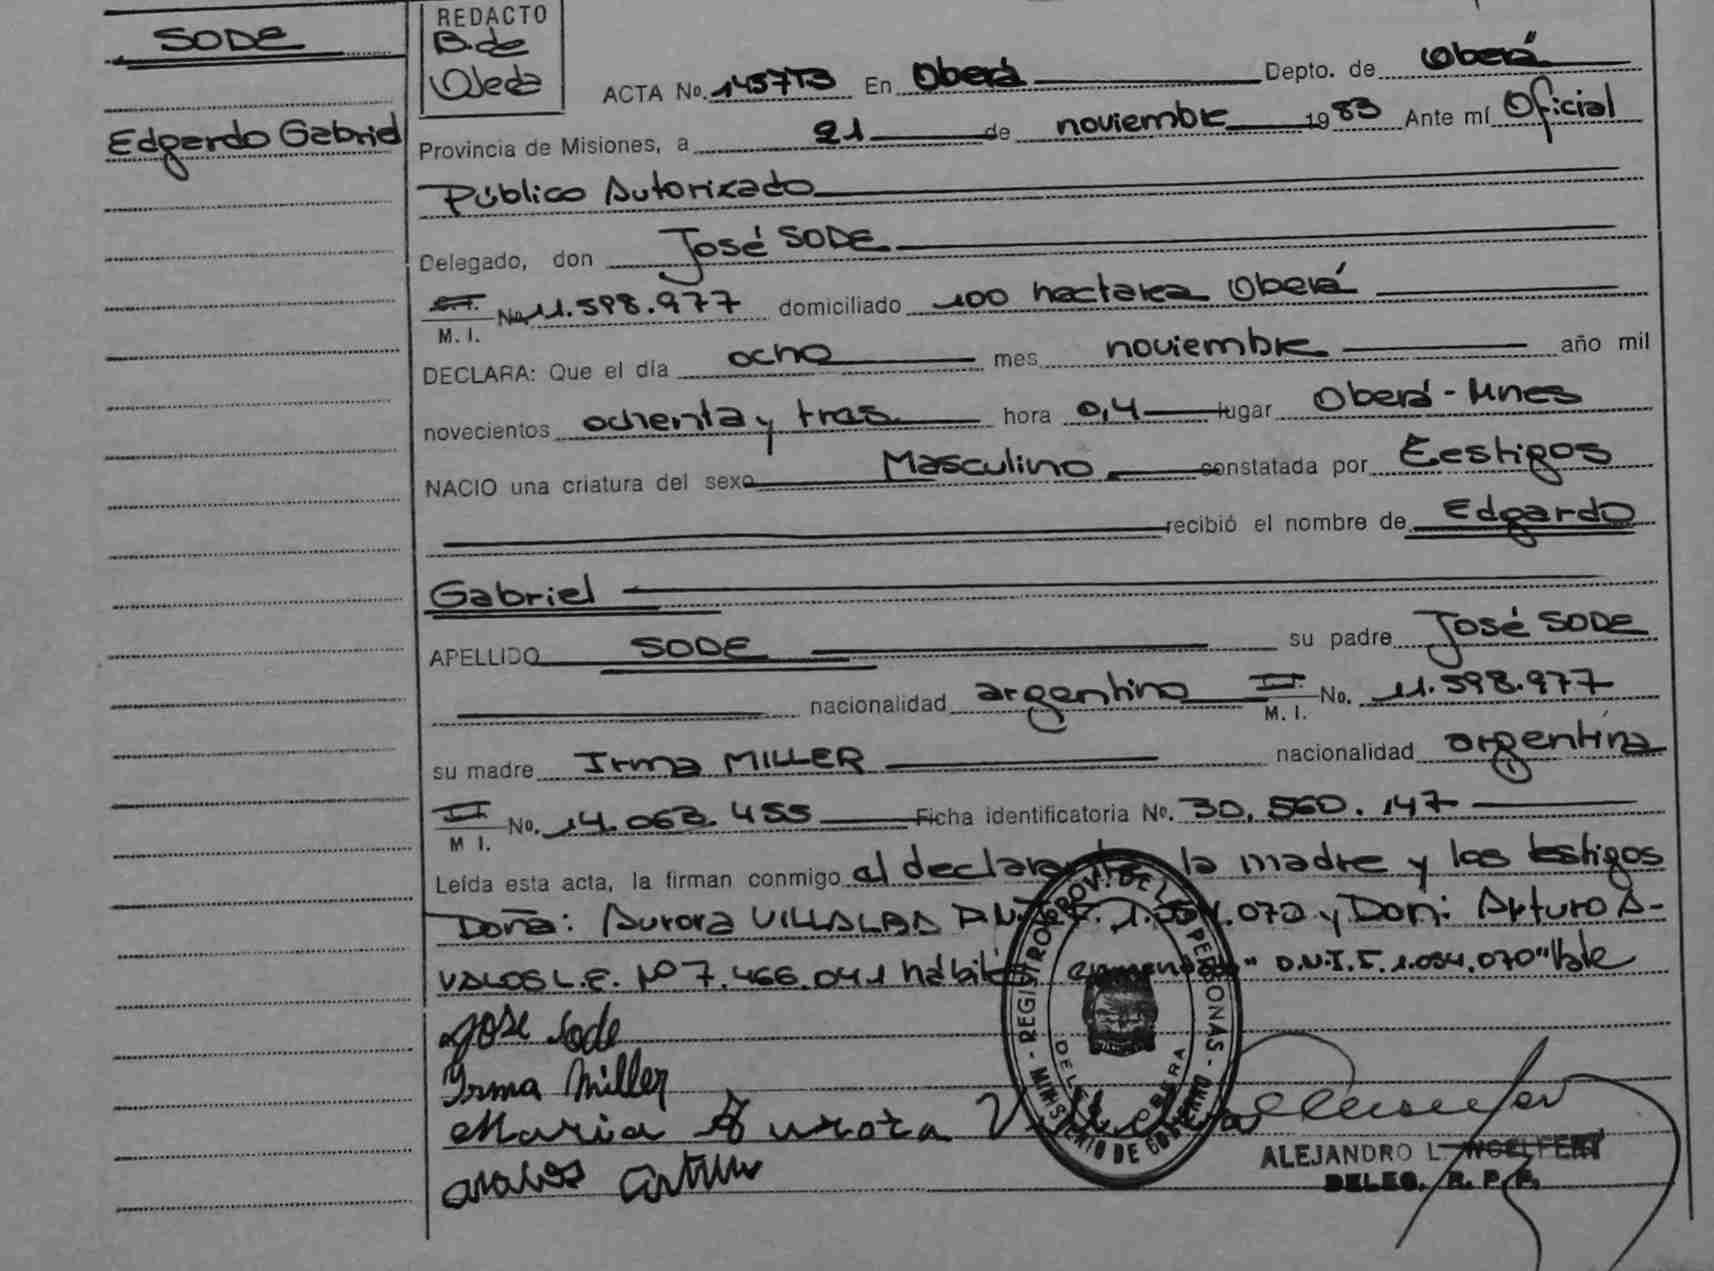 SODE
Edgardo Gabriel
REDACTO
B. de
Ojeda
ACTA No. 1457T3 En Oberá Depto. de Oberá
Provincia de Misiones, a 21 de noviembre 1983 Ante mí Oficial
Público Autorizado
Delegado, don José SODE
M. I. No. 11.598.977 domiciliado 100 hectarea Oberá
DECLARA: Que el día ocho mes noviembre año mil
novecientos ochenta y tres hora 0,4 lugar Oberá - Mnes
NACIO una criatura del sexo Masculino constatada por Testigos
recibió el nombre de Edgardo
Gabriel
APELLIDO SODE su padre José SODE
nacionalidad argentino M. I. No. 11.598.977
su madre Irma MILLER nacionalidad argentina
M I. No. 14.063.455 Ficha identificatoria No. 30.560.147
Leída esta acta, la firman conmigo el declarante la madre y los testigos
Doña: Aurora VILLALBA D.N.I. F. 072 y Don: Arturo A-
VALOS L.E. Nº 7.466.041 hábiles enmendado" D.N.I.F. 1.054.070" Vale
Jose Sode
Irma Miller
Maria Aurora Villalba
Avalos Arturo
REGISTRO PROV. DE LAS PERSONAS - MINISTERIO DE GOBIERNO -
ALEJANDRO L.
DELEG. R. P. P.